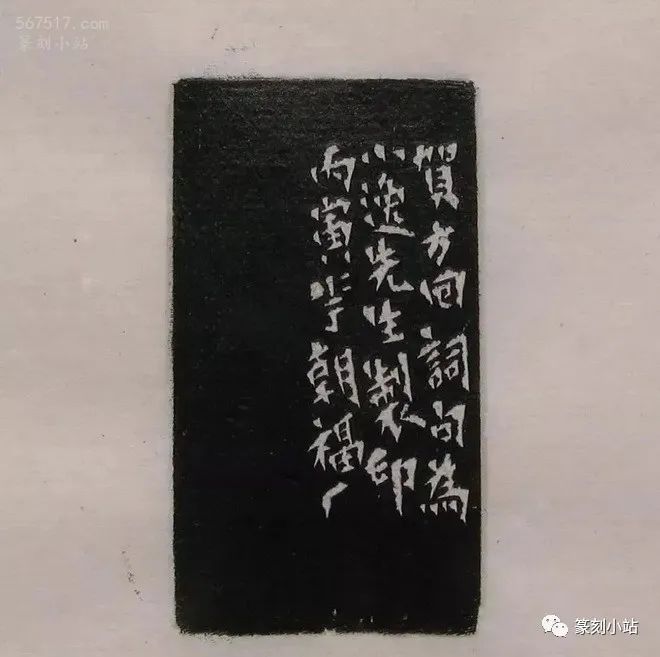 567517.com
篆刻小站
賀方回詞句為
小逸先生製印
丙寅朝福厂
篆刻小站